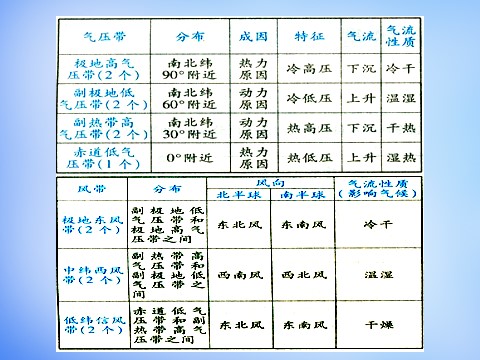 气压带 分布 成因 特征 气流 气流性质
极地高气压带(2个) 南北纬90°附近 热力原因 冷高压 下沉 冷干
副极地低气压带(2个) 南北纬60°附近 动力原因 冷低压 上升 温湿
副热带高气压带(2个) 南北纬30°附近 动力原因 热高压 下沉 干热
赤道低气压带(1个) 0°附近 热力原因 热低压 上升 湿热
风带 分布 风向 气流性质(影响气候)
北半球 南半球
极地东风带(2个) 副极地低气压带和极地高气压带之间 东北风 东南风 冷干
中纬西风带(2个) 副热带高气压带和副极地低气压带之间 西南风 西北风 温湿
低纬信风带(2个) 赤道低气压带和副热带高气压带之间 东北风 东南风 干燥